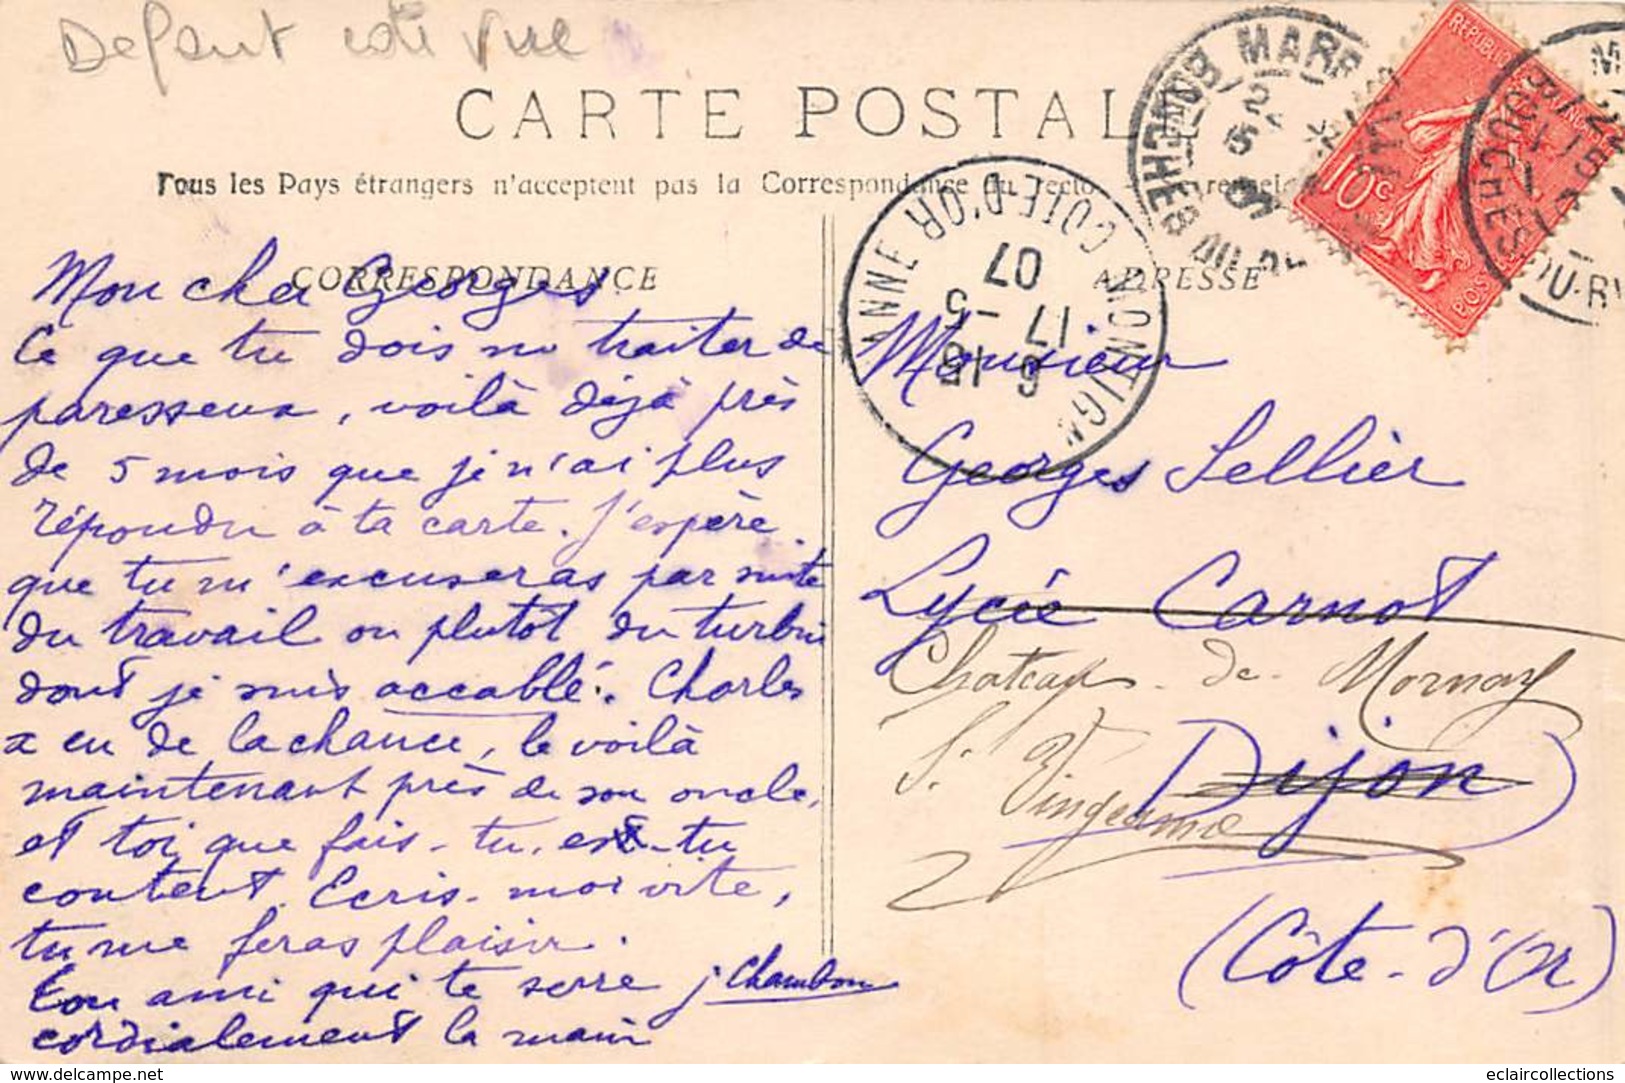 Defaut coté vue
CARTE POSTALE
Tous les Pays étrangers n'acceptent pas la Correspondance au recto
CORRESPONDANCE
ADRESSE
Mon cher Georges
Ce que tu dois me traiter de
paresseux, voilà déjà près
de 5 mois que je n'ai plus
répondu à ta carte. J'espère
que tu m'excuseras par suite
du travail ou plutôt du turbin
dont je suis accablé. Charles
a eu de la chance, le voilà
maintenant près de son oncle,
et toi que fais-tu, es-tu
content. Ecris-moi vite,
tu me feras plaisir.
Ton ami qui te serre
cordialement la main
J Chambon
Monsieur
Georges Sellier
Lycée Carnot
Chateau de Mornay
St Vingeanne
Dijon
(Côte-d'Or)
MONTIGN
ANNE COTE-D'OR
6 15
17 -5
07
BOUCHES DU RH
10c
BOUCHES-DU-R
www.delcampe.net
eclaircollections